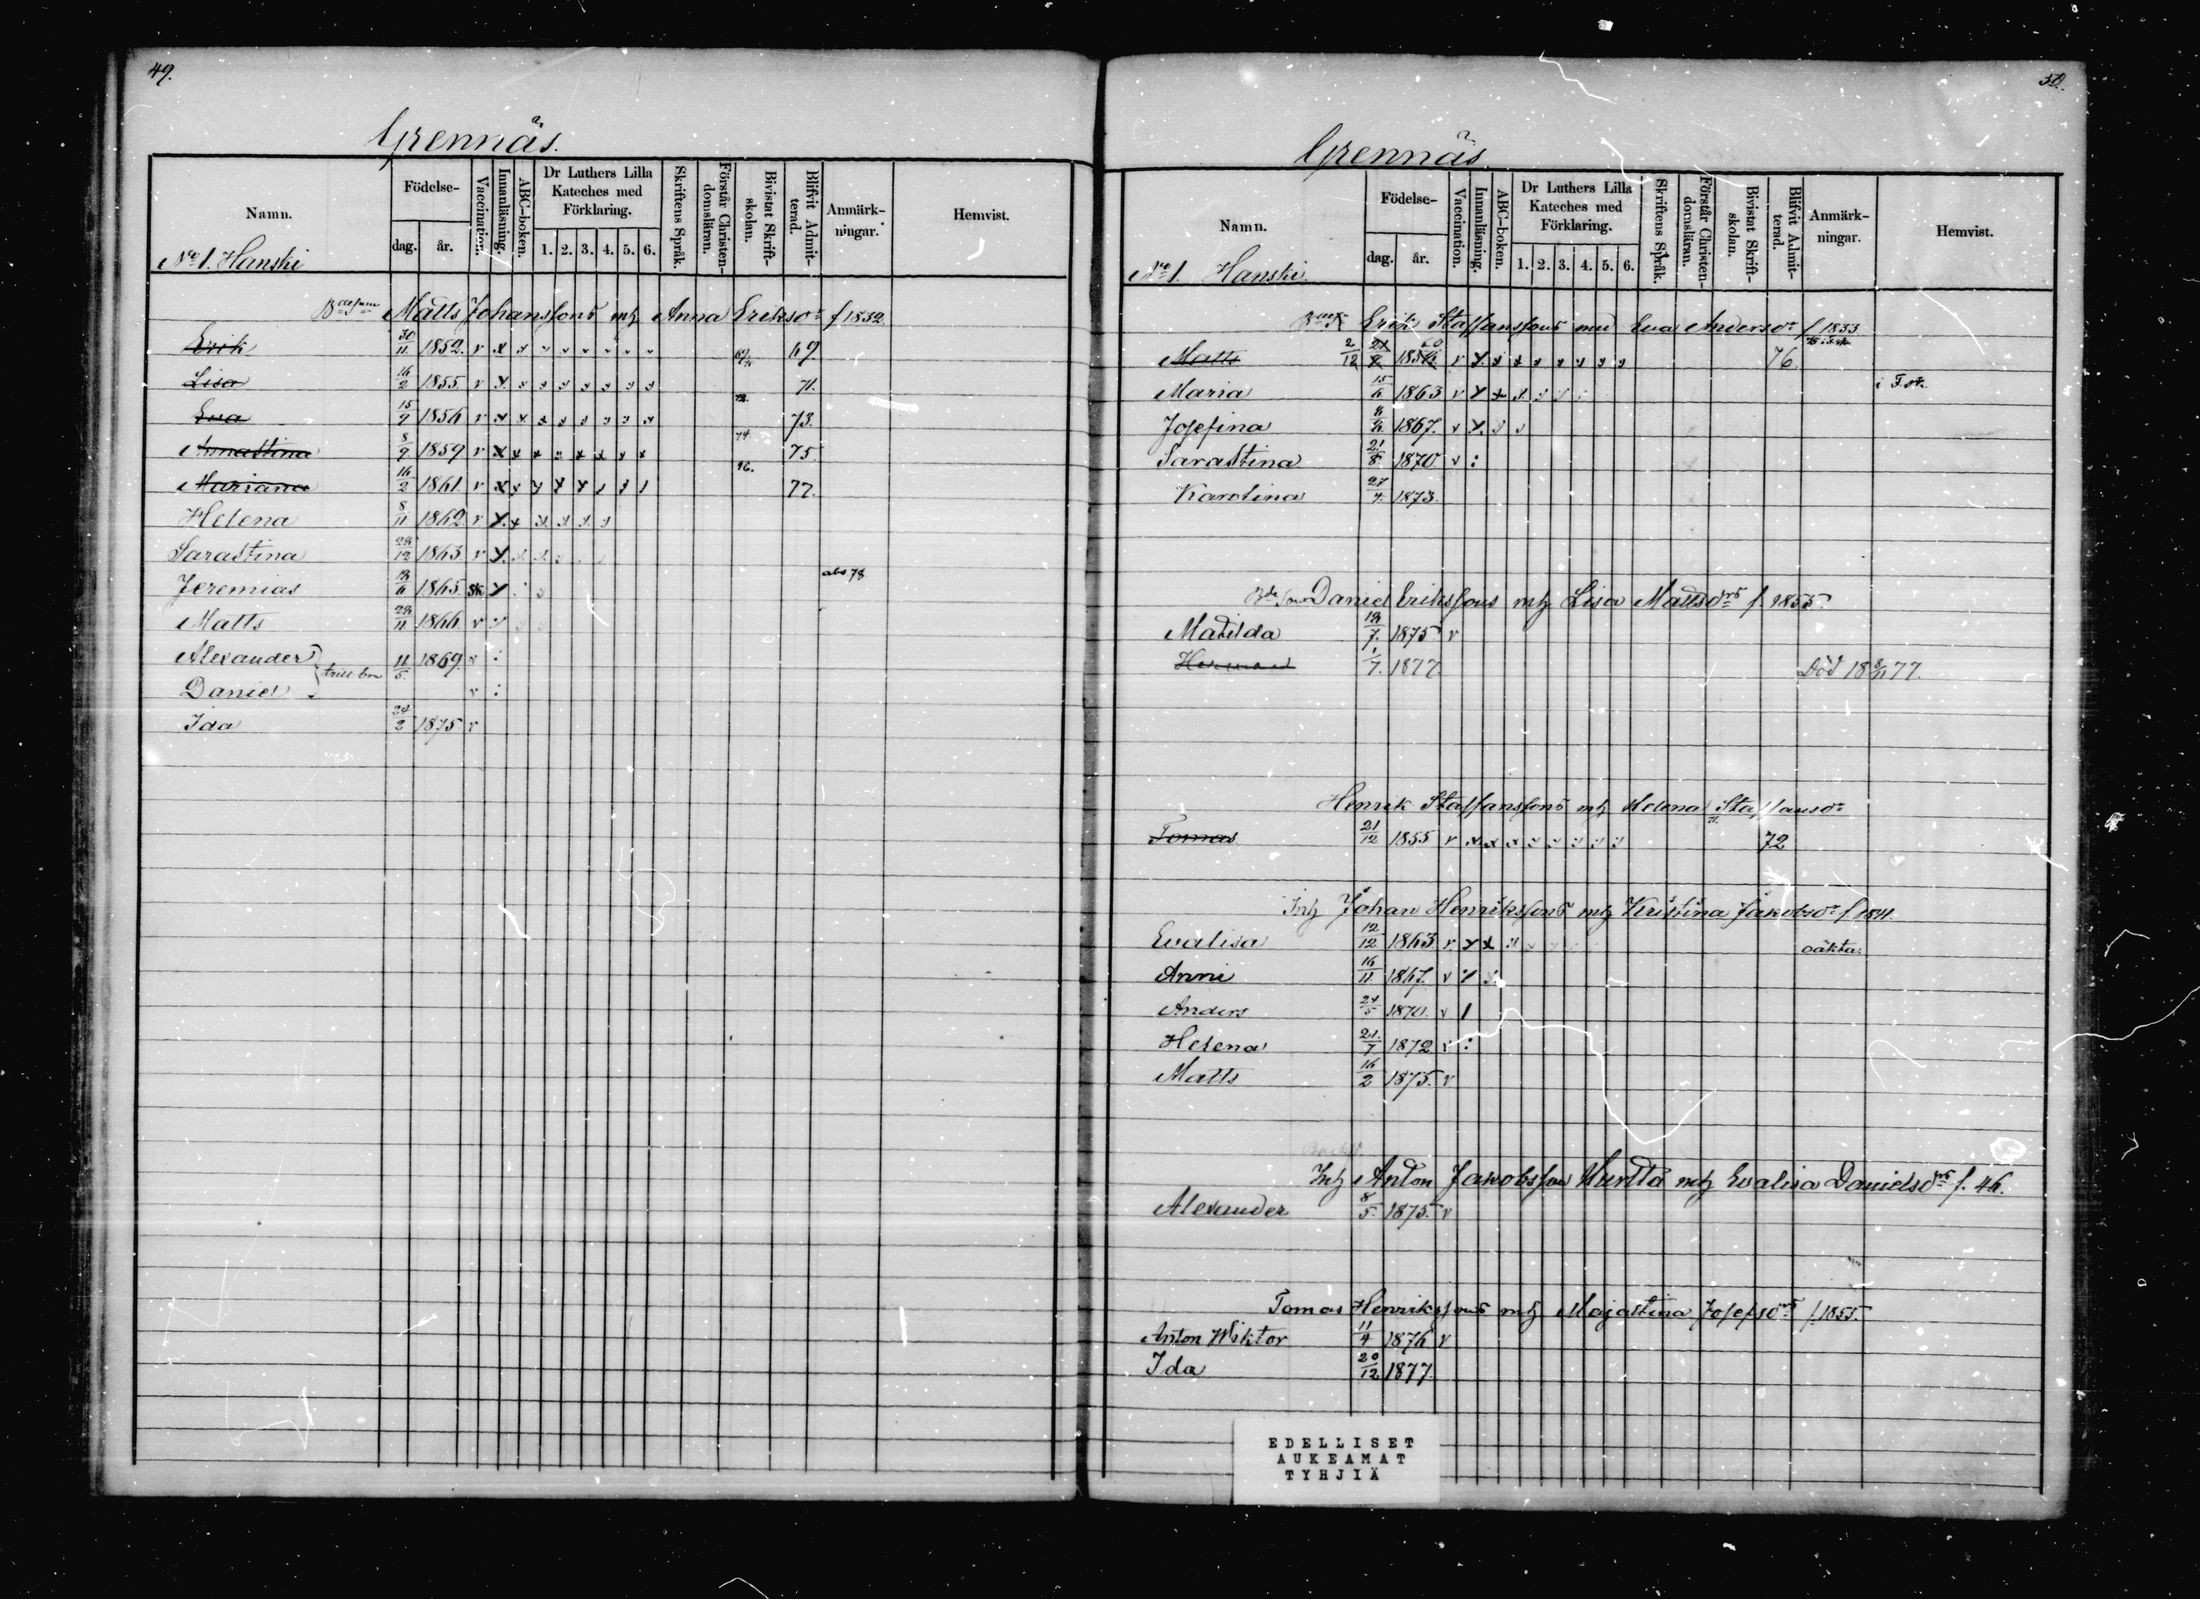 49.
Grennäs.
Namn.
Födelse-
dag.
år.
Vaccination.
Innanläsning.
ABC-boken.
Dr Luthers Lilla
Kateches med
Förklaring.
1. 2. 3. 4. 5. 6.
Skriftens Språk.
Förstår Christen-
domsläran.
Bivistat Skrift-
skolan.
Blifvit Admit-
terad.
Anmärk-
ningar.
Hemvist.
No 1. Hanski
Matts Johanssons Anna Eriksdr f 1832.
Erik 30/11 1852. v x 69.
Lisa 16/2 1855. v x 71.
Eva 15/9 1856 v x x 73.
Annastina 8/9 1859 v x x 74 75.
Mariana 16/2 1861. v x x 76. 77.
Helena 8/11 1862. v x x
Sarastina 24/12 1863. v x
Jeremias 1865. sk x abs 78
Matts 24/11 1866. v
Alexander 11/5. 1869. v :
Daniel v :
Ida 24/2 1875 v
50.
Grennäs
Namn.
Födelse-
dag.
år.
Vaccination.
Innanläsning.
ABC-boken.
Dr Luthers Lilla
Kateches med
Förklaring.
1. 2. 3. 4. 5. 6.
Skriftens Språk.
Förstår Christen-
domsläran.
Bivistat Skrift-
skolan.
Blifvit Admit-
terad.
Anmärk-
ningar.
Hemvist.
No 1. Hanski
Erik Staffanssons med Eva Andersdr f. 1833
Matts 2/12 v x 76.
Maria 15/6 1863 v x x
Josefina 1867. v x
Sarastina 21/8 1870 v :
Karolina 27/4. 1873.
Daniel Erikssons Lisa Mattsdr f. 1855.
Matilda 1875 v
Herman 1/7. 1877. Död 18 77.
Henrik Staffanssons Helena Staffansdr
Tomas 21/12 1855 v x x 72
Johan Henrikssons Kristina Jakobsdr f. 1841.
Evalisa 12/12 1863. v x x oäkta.
Anni 16/11 1867. v
Anders 24/5 1870. v
Helena 21/7 1872 v :
Matts 16/2 1875. v
Anton Jakobsson Hurtta Evalisa Danielsdr f. 46.
Alexander 8/5. 1875. v
Tomas Henrikssons Majastina Josefsdr f. 1855.
Anton Wiktor 11/4 1876 v
Ida 20/12 1877.
EDELLISET
AUKEAMAT
TYHJIÄ